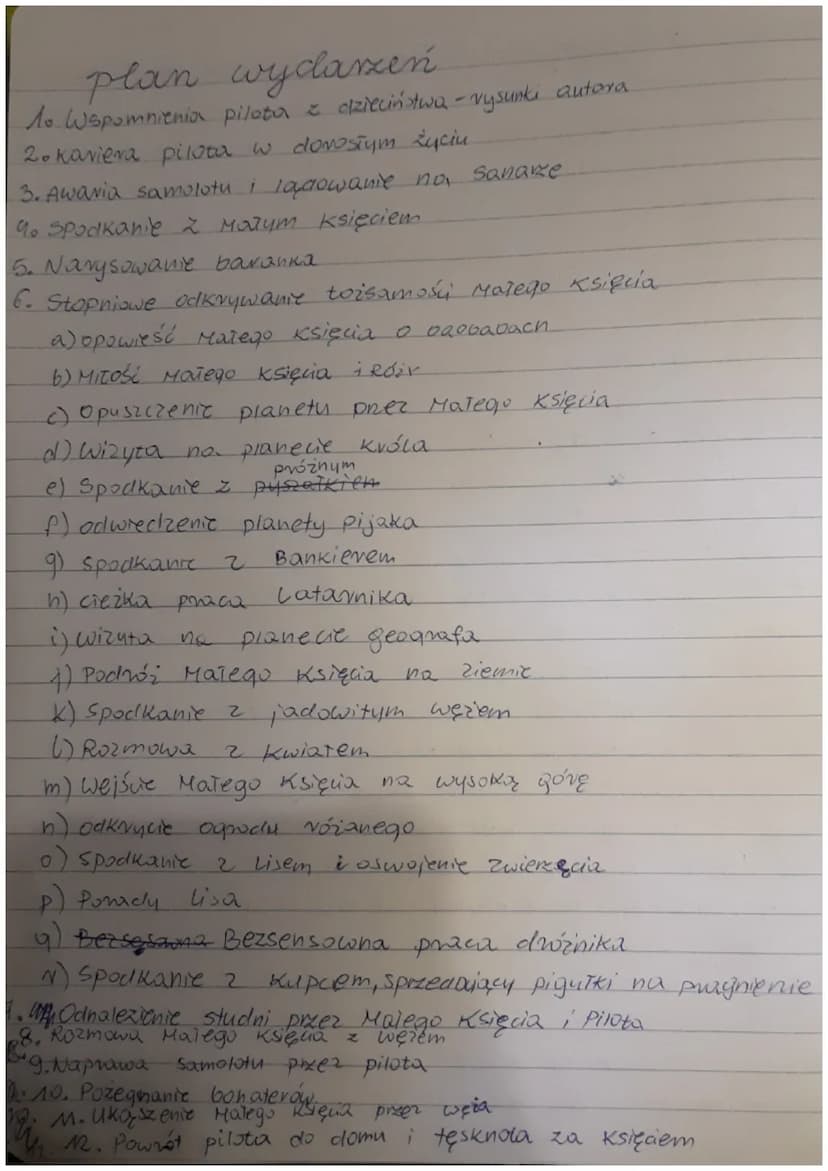 plan wydarzeń
1. Wspomnienia pilota z dzieciństwa - rysunki autora
2. kariera pilota w dorosłym życiu
3. Awaria samolotu i lądowanie na Saharze
4. Spodkanie z Małym Księciem
5. Narysowanie baranka
6. Stopniowe odkrywanie tożsamości Małego Księcia
a) opowieść Małego Księcia o baobabach
b) Miłość Małego Księcia i Róży
c) Opuszczenie planety przez Małego Księcia
d) Wizyta na planecie Króla
próżnym
e) Spodkanie z pyszałkiem
f) odwiedzenie planety pijaka
g) Spodkanie z Bankierem
h) ciężka praca Latarnika
i) wizyta na planecie geografa
j) Podróż Małego Księcia na ziemie
k) Spodkanie z jadowitym wężem
l) Rozmowa z kwiatem
m) Wejście Małego Księcia na wysoką górę
n) odkrycie ogrodu różanego
o) Spodkanie z Lisem i oswojenie zwierzęcia
p) Porady lisa
q) Bezsensowna praca dróżnika
r) Spodkanie z kupcem, sprzedający pigułki na pragnienie
7. Odnalezienie studni przez Małego Księcia i Pilota
8. Rozmowa Małego Księcia z wężem
9. Naprawa samolotu przez pilota
10. Pożegnanie bohaterów
11. Ukąszenie Małego Księcia przez węża
12. Powrót pilota do domu i tęsknota za Księciem